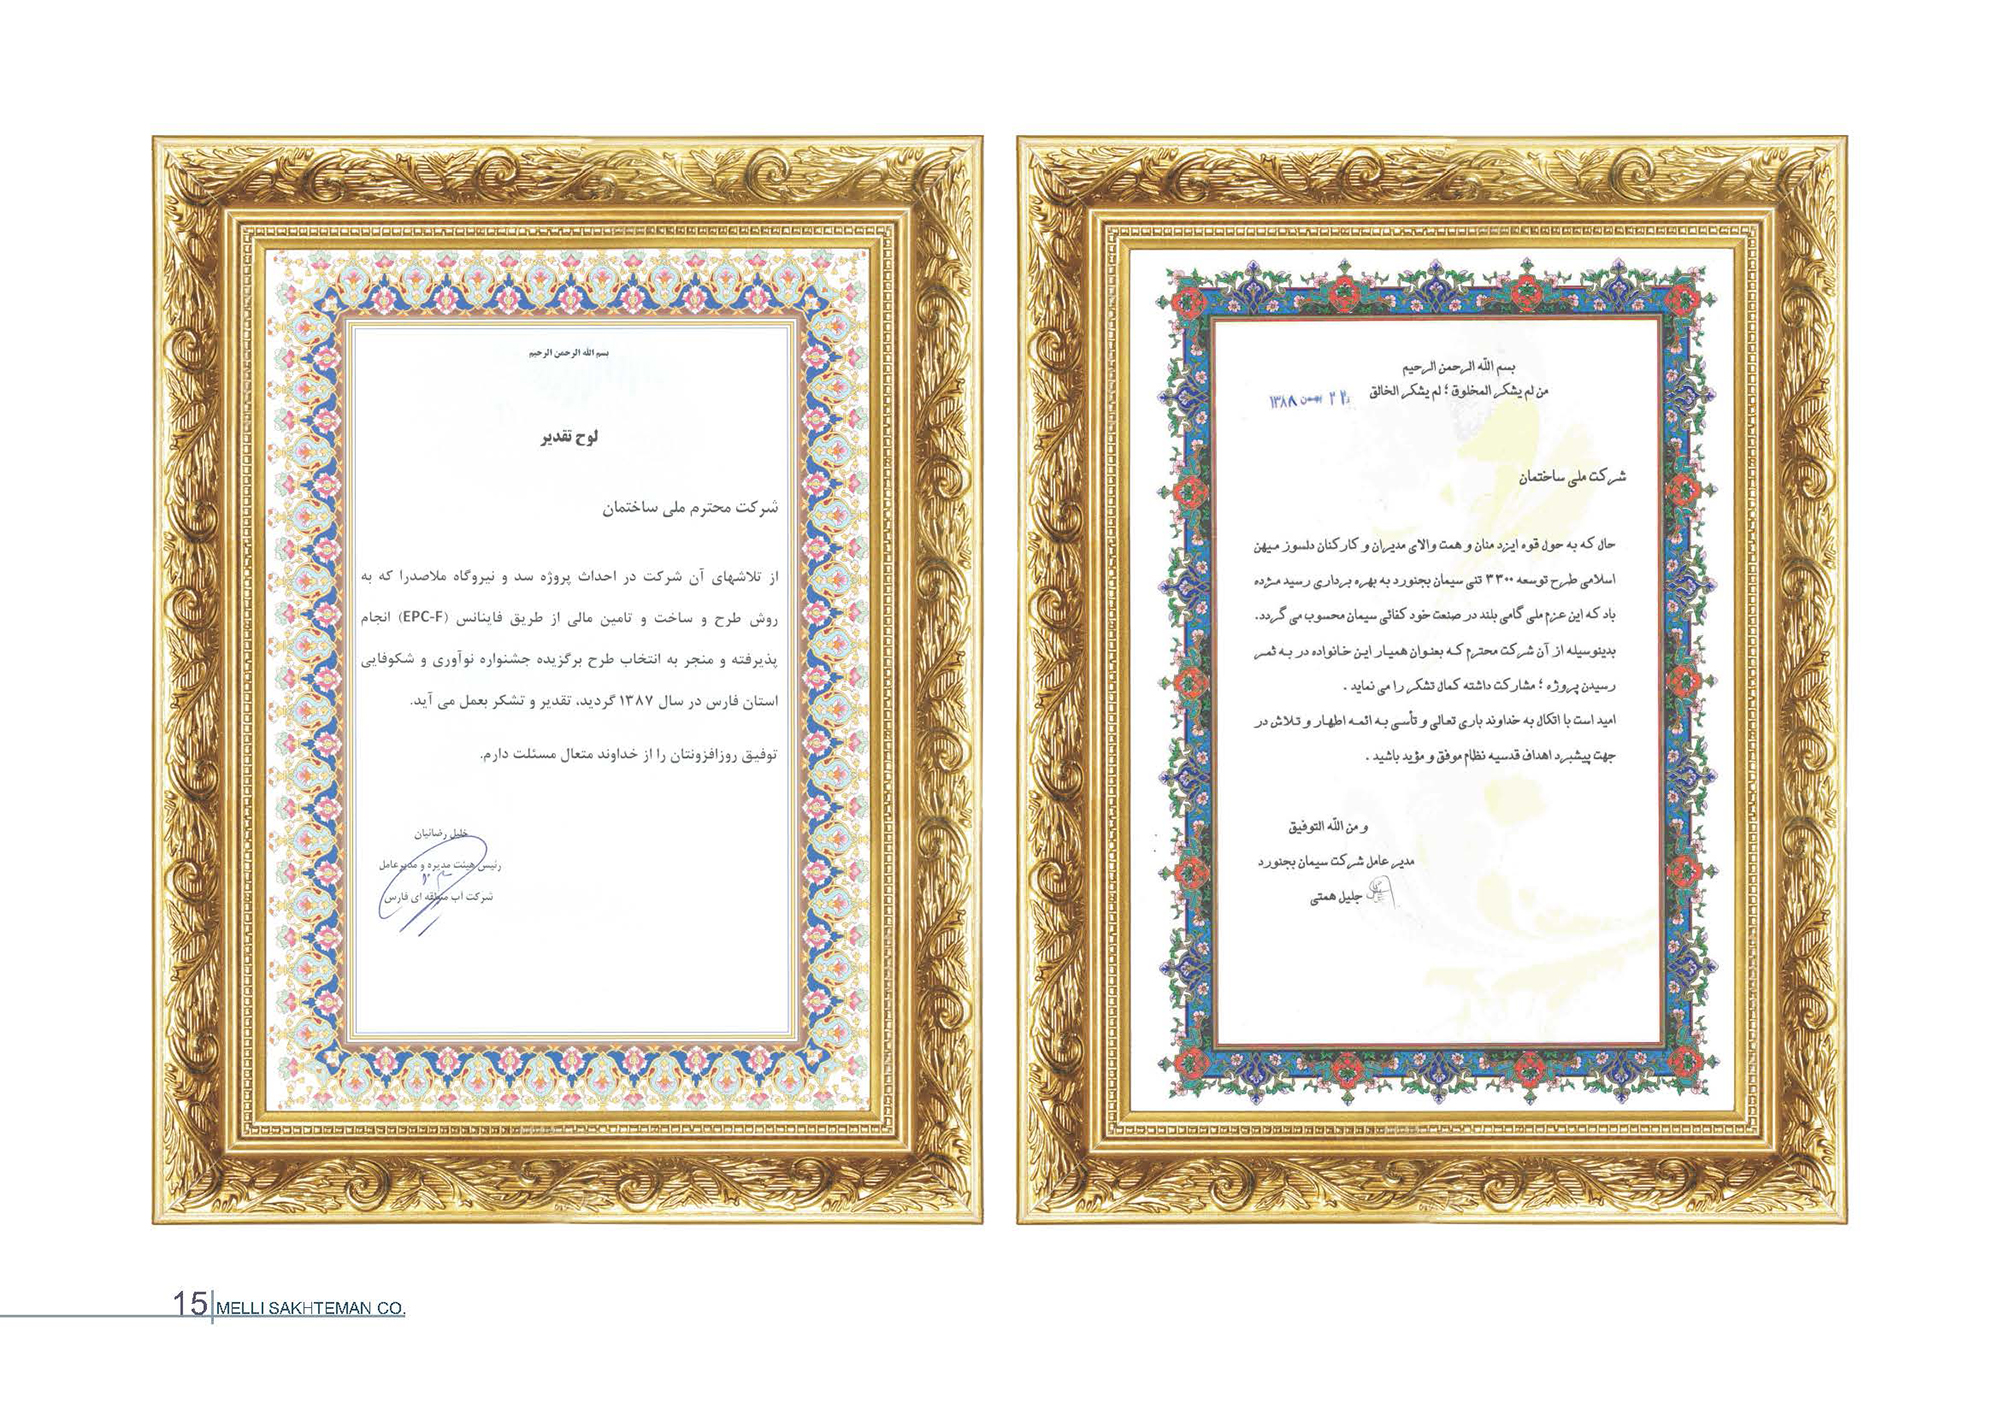 بسم الله الرحمن الرحیم
من لم یشکر المخلوق ؛ لم یشکر الخالق
۲۲ بهمن ۱۳۸۸
شرکت ملی ساختمان
حال که به حول قوه ایزد منان و همت والای مدیران و کارکنان دلسوز میهن
اسلامی طرح توسعه ۳۳۰۰ تنی سیمان بجنورد به بهره برداری رسید مژده
باد که این عزم ملی گامی بلند در صنعت خود کفائی سیمان محسوب می گردد.
بدینوسیله از آن شرکت محترم که بعنوان همیار این خانواده در به ثمر
رسیدن پروژه ؛ مشارکت داشته کمال تشکر را می نماید .
امید است با اتکال به خداوند باری تعالی و تأسی به ائمه اطهار و تلاش در
جهت پیشبرد اهداف قدسیه نظام موفق و مؤید باشید .
و من الله التوفیق
مدیر عامل شرکت سیمان بجنورد
جلیل همتی
بسم الله الرحمن الرحیم
لوح تقدیر
شرکت محترم ملی ساختمان
از تلاشهای آن شرکت در احداث پروژه سد و نیروگاه ملاصدرا که به
روش طرح و ساخت و تامین مالی از طریق فاینانس (EPC-F) انجام
پذیرفته و منجر به انتخاب طرح برگزیده جشنواره نوآوری و شکوفایی
استان فارس در سال ۱۳۸۷ گردید، تقدیر و تشکر بعمل می آید.
توفیق روزافزونتان را از خداوند متعال مسئلت دارم.
خلیل رضائیان
رئیس هیئت مدیره و مدیرعامل
شرکت آب منطقه ای فارس
15 MELLI SAKHTEMAN CO.